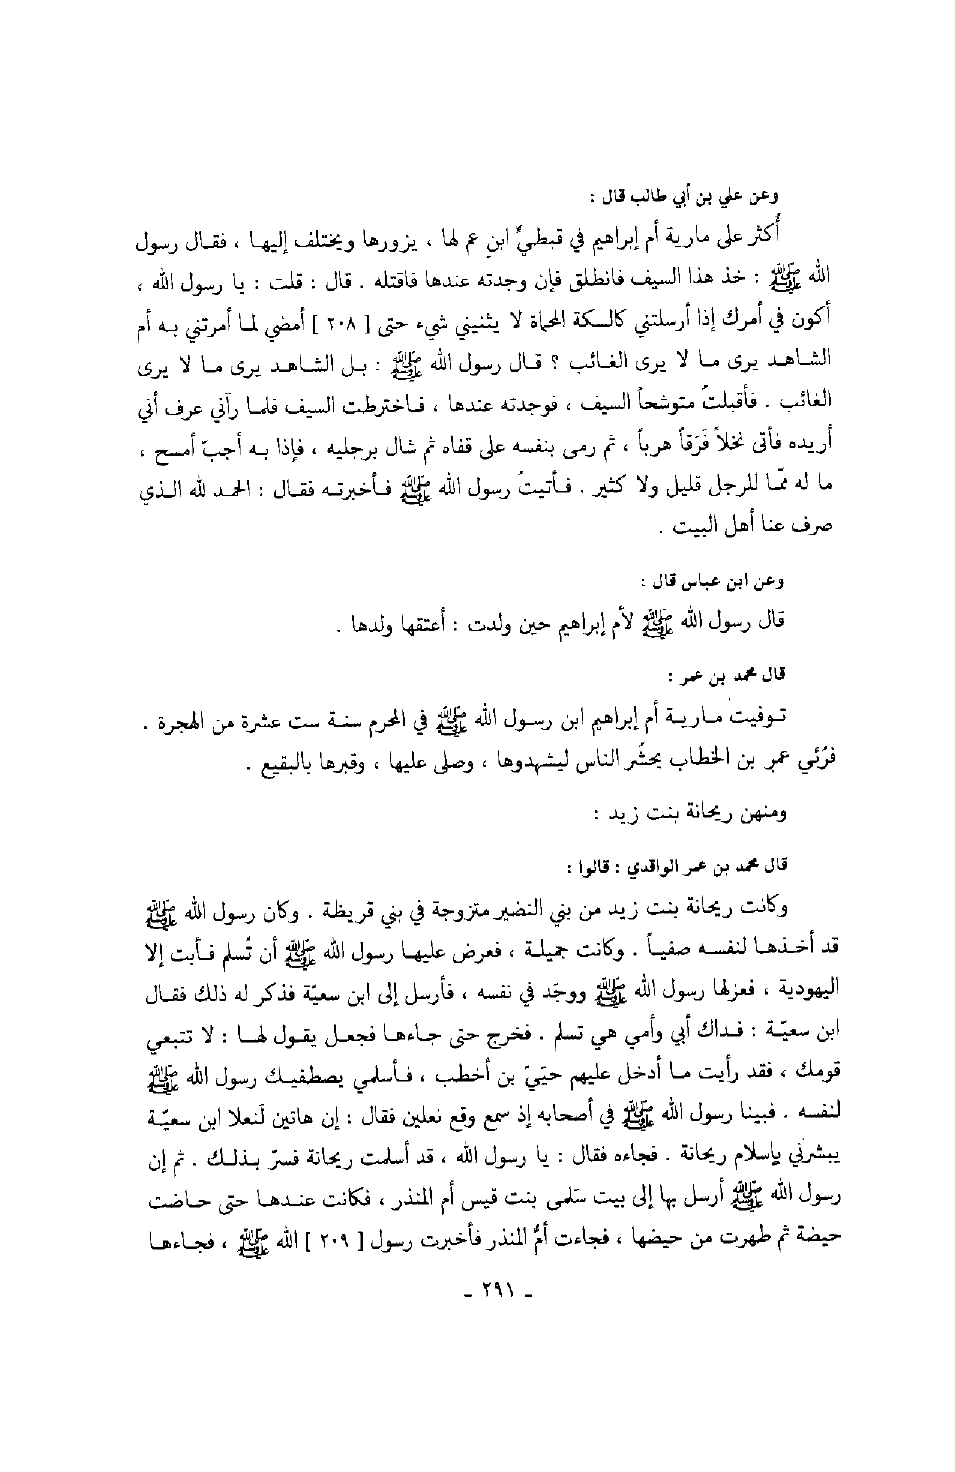 وعن علي بن أبي طالب قال :
أُكثر على مارية أم إبراهيم في قبطيٍّ ابنِ عم لها ، يزورها ويختلف إليها ، فقال رسول
الله ﷺ : خذ هذا السيف فانطلق فإن وجدته عندها فاقتله . قال : قلت : يا رسول الله ،
أكون في أمرك إذا أرسلتني كالسكة المحماة لا يثنيني شيء حتى [ ٢٠٨ ] أمضي لما أمرتني به أم
الشاهد يرى ما لا يرى الغائب ؟ قال رسول الله ﷺ : بل الشاهد يرى ما لا يرى
الغائب . فأقبلتُ متوشحاً السيف ، فوجدته عندها ، فاخترطت السيف فلما رآني عرف أني
أريده فأتى نخلاً فَرَقاً هرباً ، ثم رمى بنفسه على قفاه ثم شال برجليه ، فإذا به أجبّ أمسح ،
ما له ممّا للرجل قليل ولا كثير . فأتيتُ رسول الله ﷺ فأخبرته فقال : الحمد لله الذي
صرف عنا أهل البيت .
وعن ابن عباس قال :
قال رسول الله ﷺ لأم إبراهيم حين ولدت : أعتقها ولدها .
قال محمد بن عمر :
توفيت مارية أم إبراهيم ابن رسول الله ﷺ في المحرم سنة ست عشرة من الهجرة .
فرُئي عمر بن الخطاب يحشُر الناس ليشهدوها ، وصلى عليها ، وقبرها بالبقيع .
ومنهن ريحانة بنت زيد :
قال محمد بن عمر الواقدي : قالوا :
وكانت ريحانة بنت زيد من بني النضير متزوجة في بني قريظة . وكان رسول الله ﷺ
قد أخذها لنفسه صفياً . وكانت جميلة ، فعرض عليها رسول الله ﷺ أن تُسلم فأبت إلا
اليهودية ، فعزلها رسول الله ﷺ ووجَد في نفسه ، فأرسل إلى ابن سعيّة فذكر له ذلك فقال
ابن سعيّة : فداك أبي وأمي هي تسلم . فخرج حتى جاءها فجعل يقول لها : لا تتبعي
قومك ، فقد رأيت ما أدخل عليهم حيَيّ بن أخطب ، فأسلمي يصطفيك رسول الله ﷺ
لنفسه . فبينا رسول الله ﷺ في أصحابه إذ سمع وقع نعلين فقال : إن هاتين لَنعلا ابن سعيّة
يبشرني بإسلام ريحانة . فجاءه فقال : يا رسول الله ، قد أسلمت ريحانة فسرّ بذلك . ثم إن
رسول الله ﷺ أرسل بها إلى بيت سَلمى بنت قيس أم المنذر ، فكانت عندها حتى حاضت
حيضة ثم طهرت من حيضها ، فجاءت أمُّ المنذر فأخبرت رسول [ ٢٠٩ ] الله ﷺ ، فجاءها
ـ ٢٩١ ـ